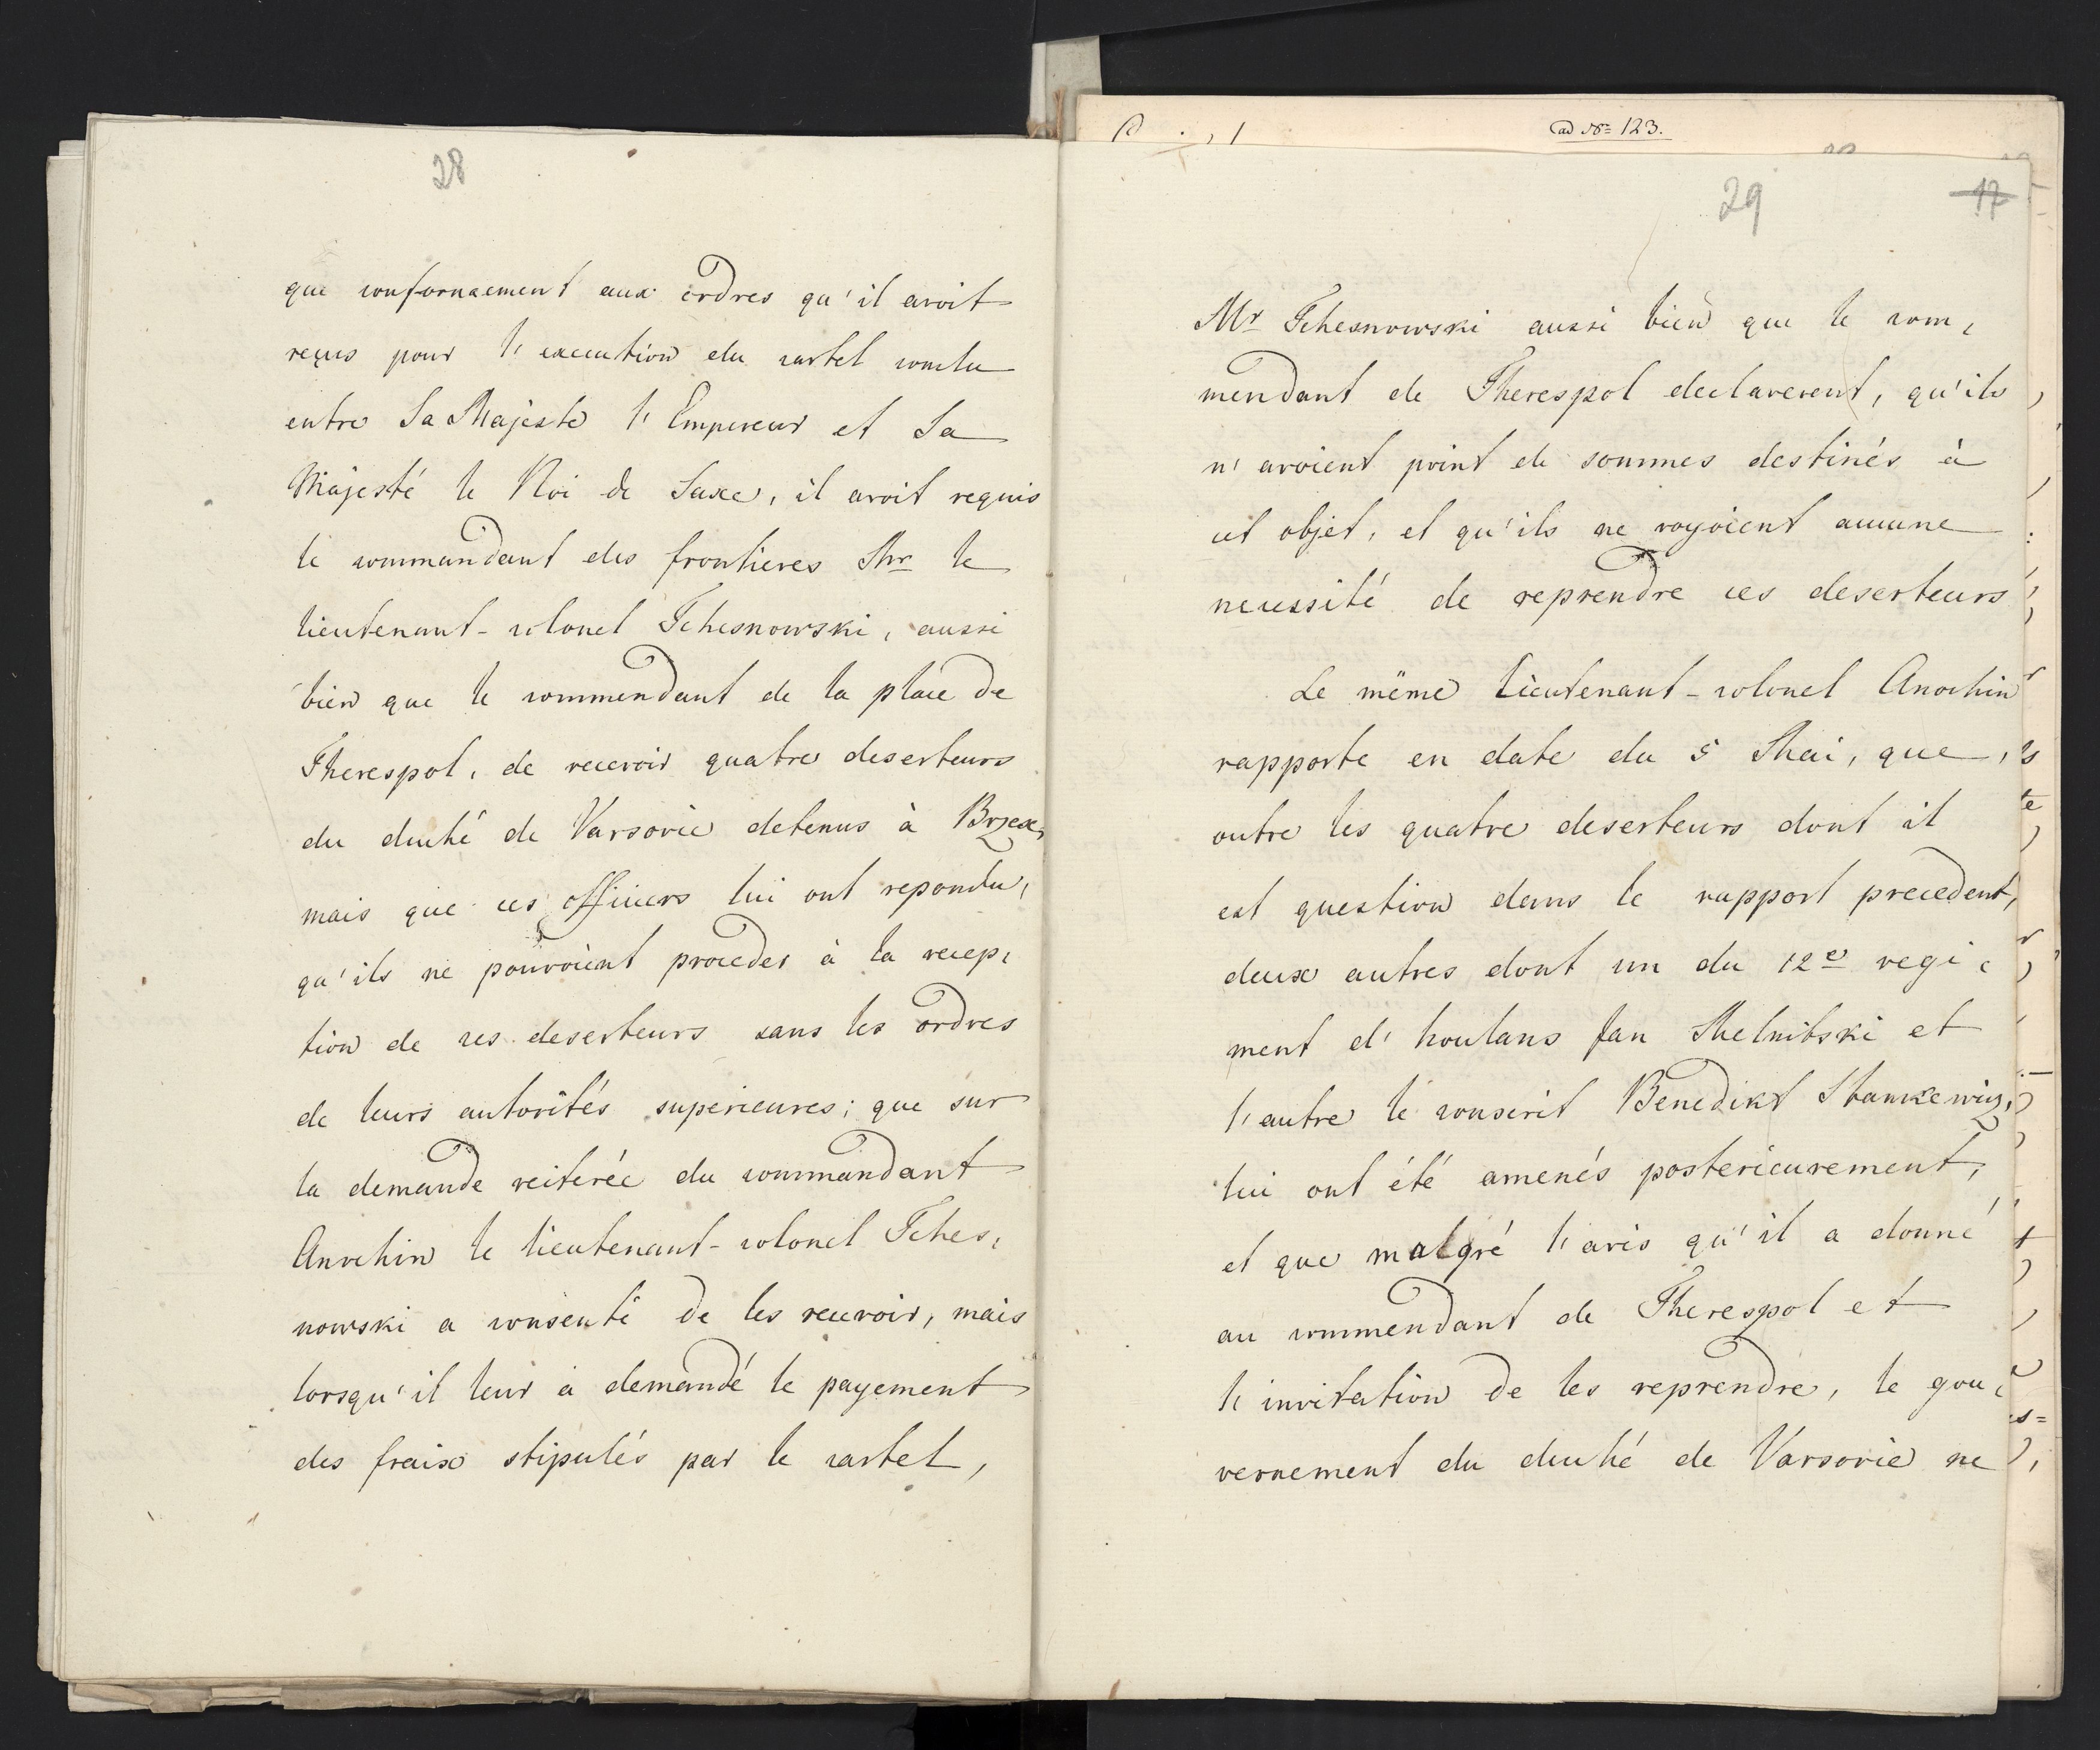 28
que conformement aux ordres qu'il avoit
reçus pour l'execution du cartel conclu
entre Sa Majeste l'Empereur et Sa
Majesté le Roi de Saxe, il avoit requis
le commandant des frontieres Mr le
lieutenant-colonel Tchesnowski, aussi
bien que le commendant de la place de
Therespol, de recevoir quatre deserteurs
du duché de Varsovie detenus à Brzesc,
mais que ces officiers lui ont repondu,
qu'ils ne pouvoient proceder à la recep,
tion de ces deserteurs sans les ordres
de leurs autorités superieures; que sur
la demande reiterée du commandant
Anochin le lieutenant-colonel Tches,
nowski a consenti de les recevoir, mais
lorsqu'il leur a demandé le payement
des fraix stipulés par le cartel,
ad No 123.
29
17
Mr Tchesnowski aussi bien que le com,
mendant de Therespol declarerent, qu'ils
n'avoient point de sommes destinés à
cet objet, et qu'ils ne voyoient aucune
necessité de reprendre ces deserteurs
Le même lieutenant-colonel Anochin
rapporte en date du 5 Mai, que,
outre les quatre deserteurs dont il
est question dans le rapport precedent,
deux autres dont un du 12e regi,
ment d'houlans Jan Melnitski et
l'autre le conscrit Benedikt Stankewicz,
lui ont été amenés posterieurement,
et que malgré l'avis qu'il a donné
au commendant de Therespol et
l'invitation de les reprendre, le gou,
vernement du duché de Varsovie ne